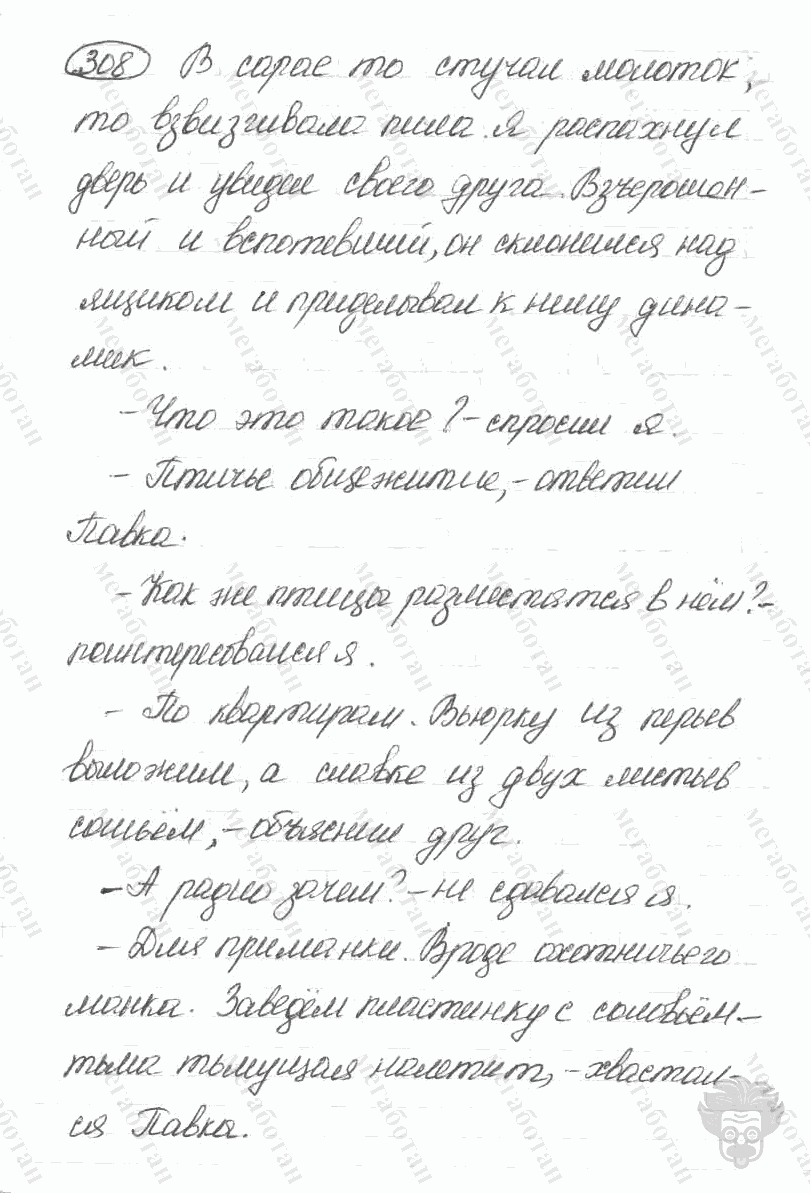 308 В сарае то стучал молоток,
то взвизгивала пила. Я распахнул
дверь и увидел своего друга. Взъерошен-
ный и вспотевший, он склонился над
ящиком и приделывал к нему дина-
мик.
- Что это такое? - спросил я.
- Птичье общежитие, - ответил
Павка.
- Как же птицы разместятся в нём? -
поинтересовался я.
- По квартирам. Вьюрку из перьев
выложим, а славке из двух листьев
сошьём, - объяснил друг.
- А радио зачем? - не сдавался я.
- Для приманки. Вроде охотничьего
манка. Заведём пластинку с соловьём -
тьма тьмущая налетит, - хвастал-
ся Павка.
мегаботан